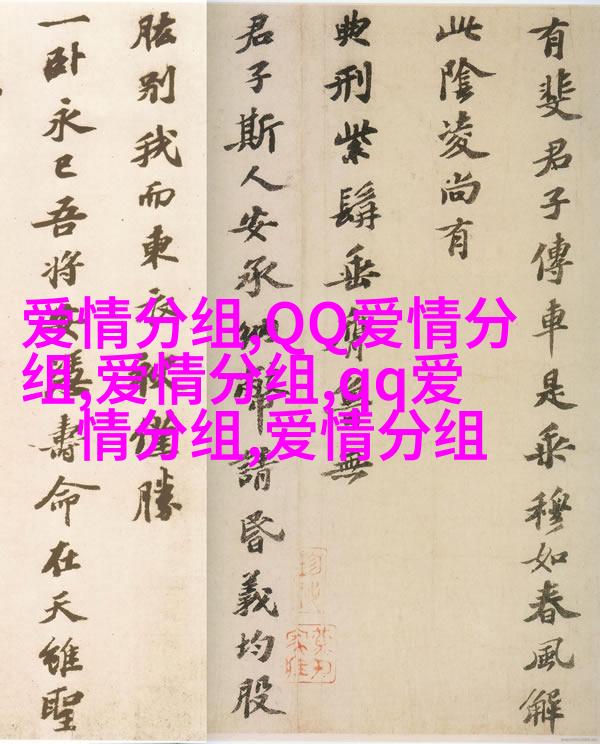 爱情分组,QQ爱情分
组,爱情分组,qq爱
情分组,爱情分组
有斐君子傳車是乘穆如春風解
此陰凌尚有
典刑紫髯垂膺無
君子斯人安承納幣請昏義均股
肱別我而東衣袂僅勝
一卧永已吾將安壽命在天雖聖